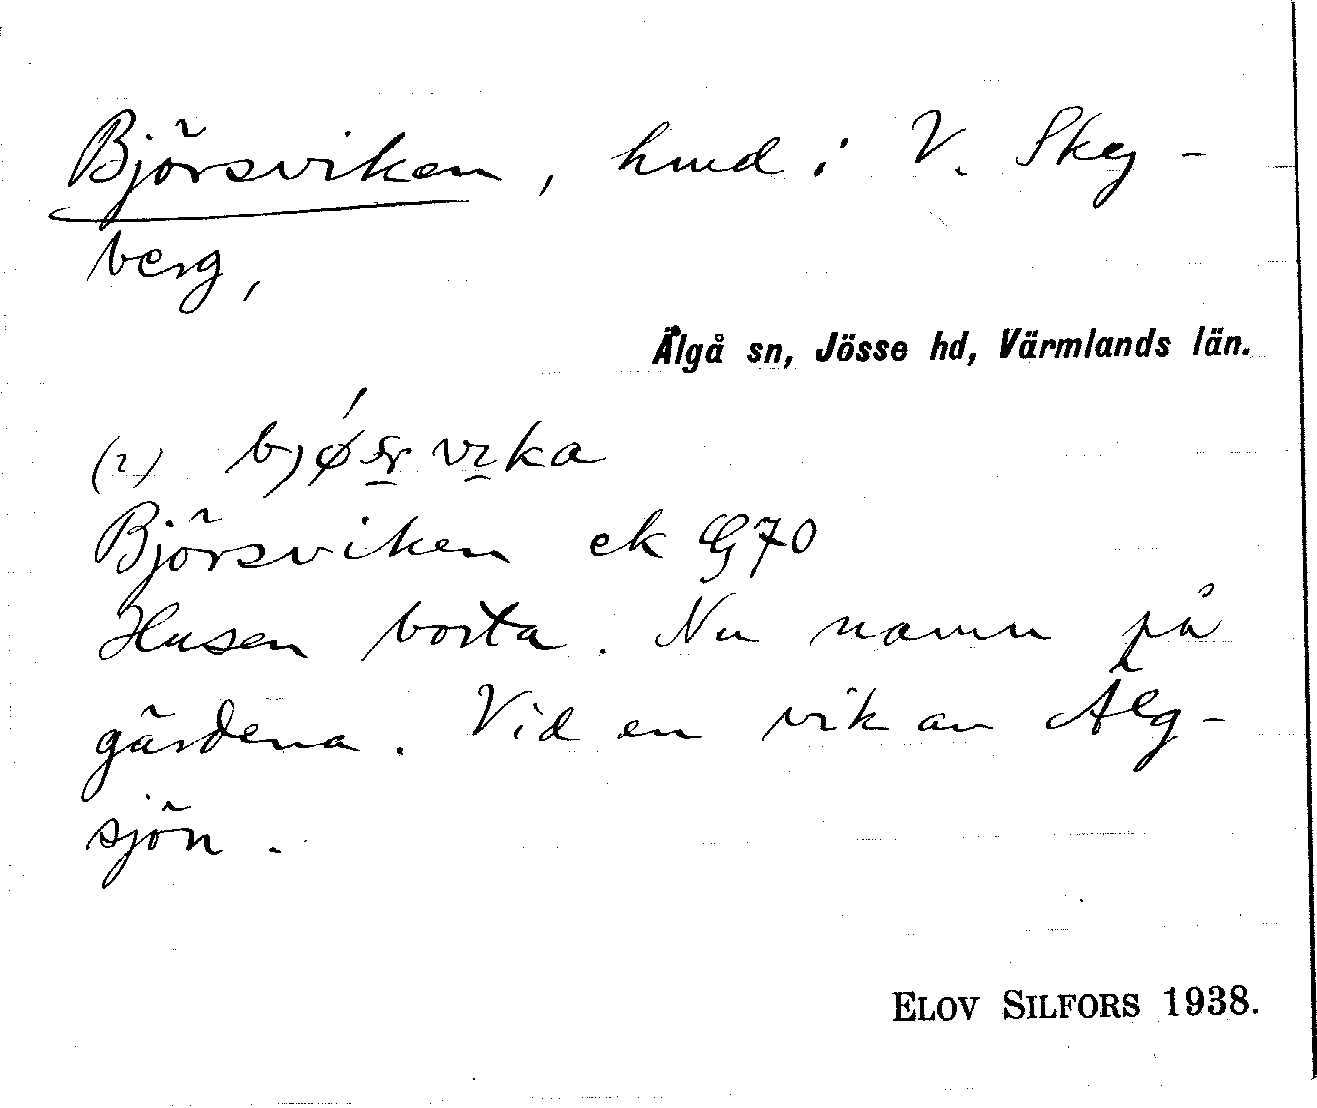 Björsviken, hmd i V. Skg-
berg,
Älgå sn, Jösse hd, Värmlands län.
(2)
Björsviken ek G70
Husen borta. Nu namn på
gärdena. Vid en vik av Älg-
sjön.
ELOV SILFORS 1938.